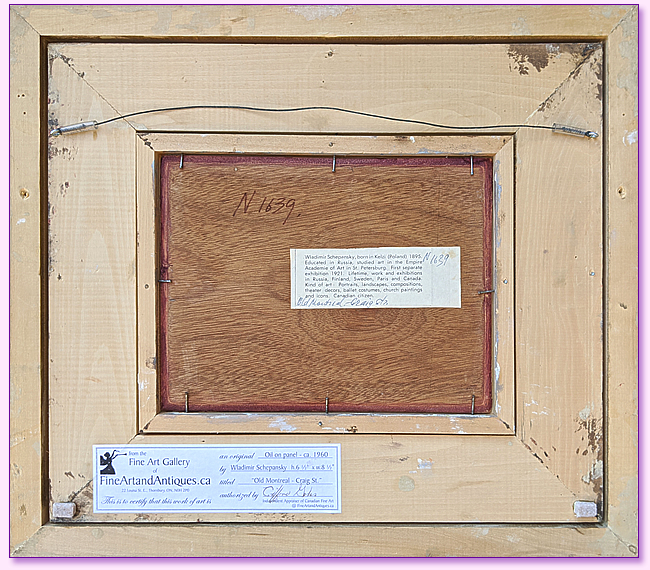 N 1639.
Wladimir Schepansky, born in Kelzi (Poland) 1895.
Educated in Russia, studied art in the Empire
Academie of Art in St. Petersburg. First separate
exhibition 1921. Lifetime, work and exhibitions
in Russia, Finland, Sweden, Paris and Canada.
Kind of art: Portraits, landscapes, compositions,
theater decors, ballet costumes, church paintings
and icons. Canadian citizen.
N 1639
Old Montreal - Craig Str.
from the
Fine Art Gallery
of
FineArtandAntiques.ca
22 Louise St. E., Thornbury ON, N0H 2P0
This is to certify that this work of art is
an original Oil on panel - ca. 1960
by Wladimir Schepansky h.6 ½" x w.8 ½"
titled "Old Montreal - Craig St."
authorized by
Independent Appraiser of Canadian Fine Art
@ FineArtandAntiques.ca